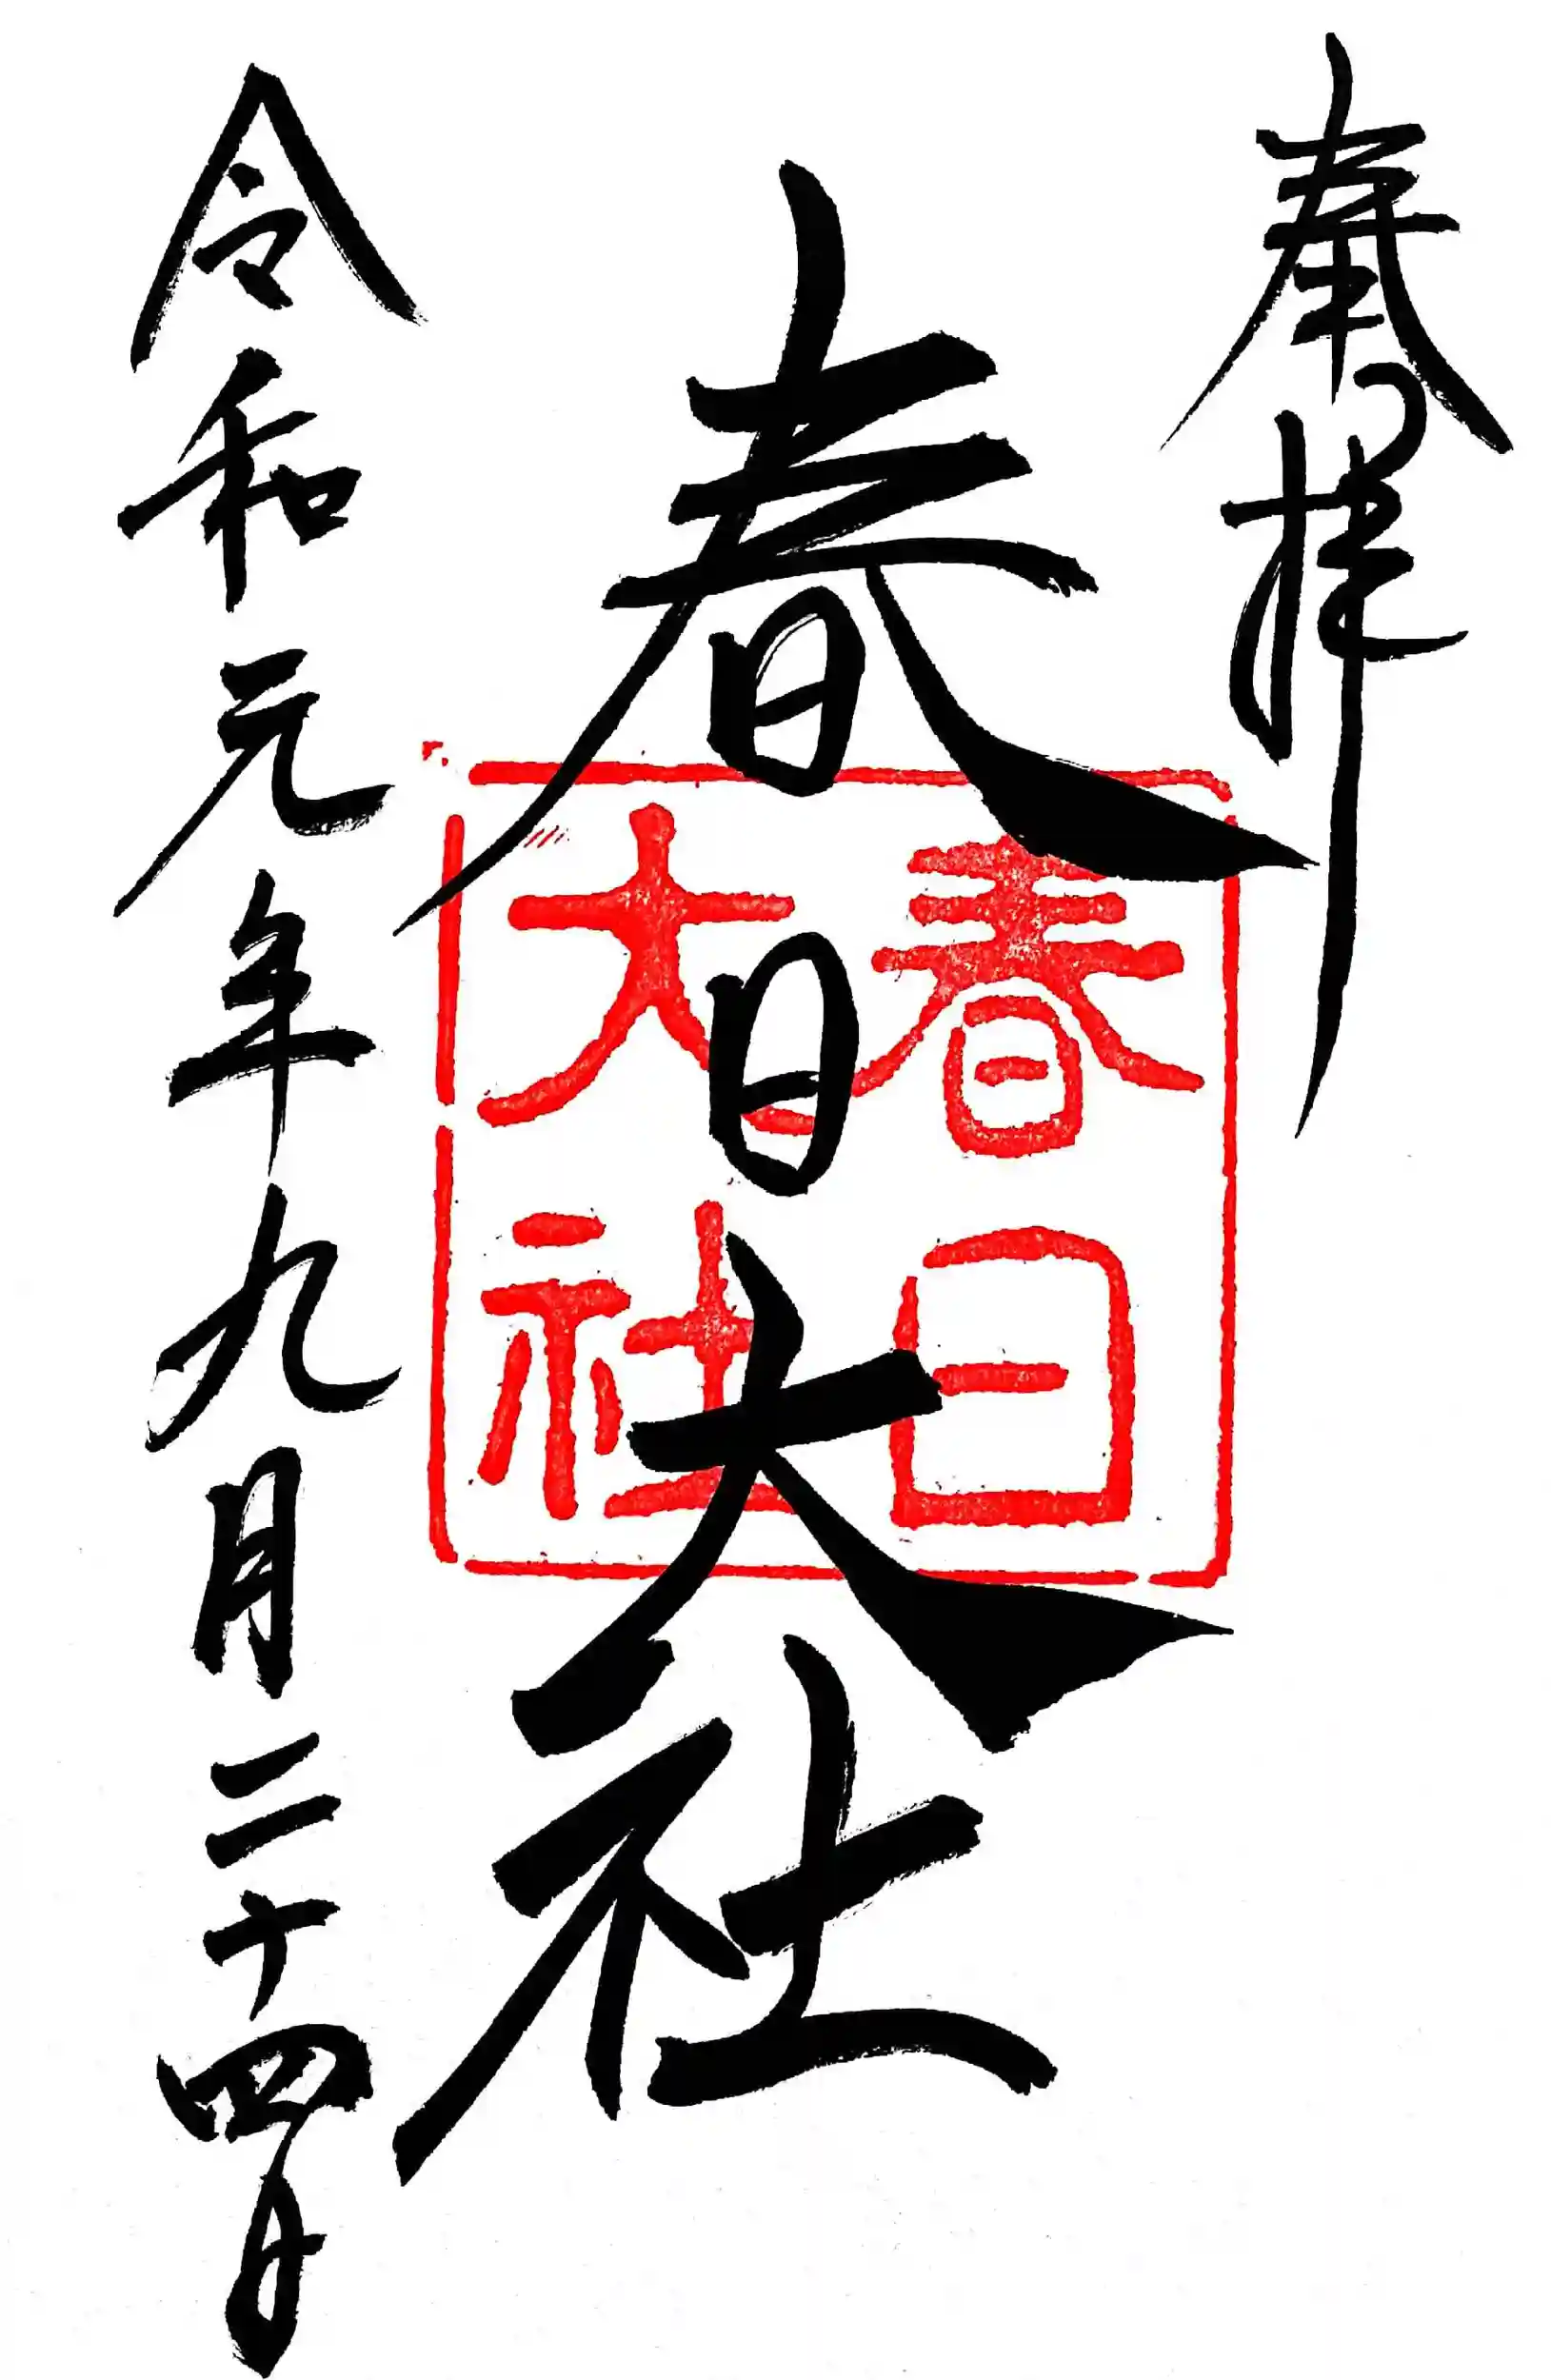 奉拝
春日大社
春日
大社
令和元年九月二十四日